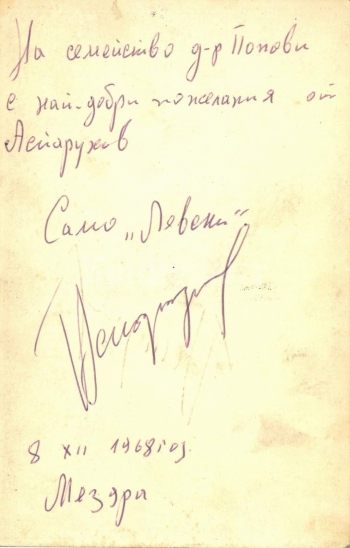 На семейство д-р Попови
с най-добри пожелания от
Аспарухов
Само „Левски“.
8 XII 1968 год.
Мездра